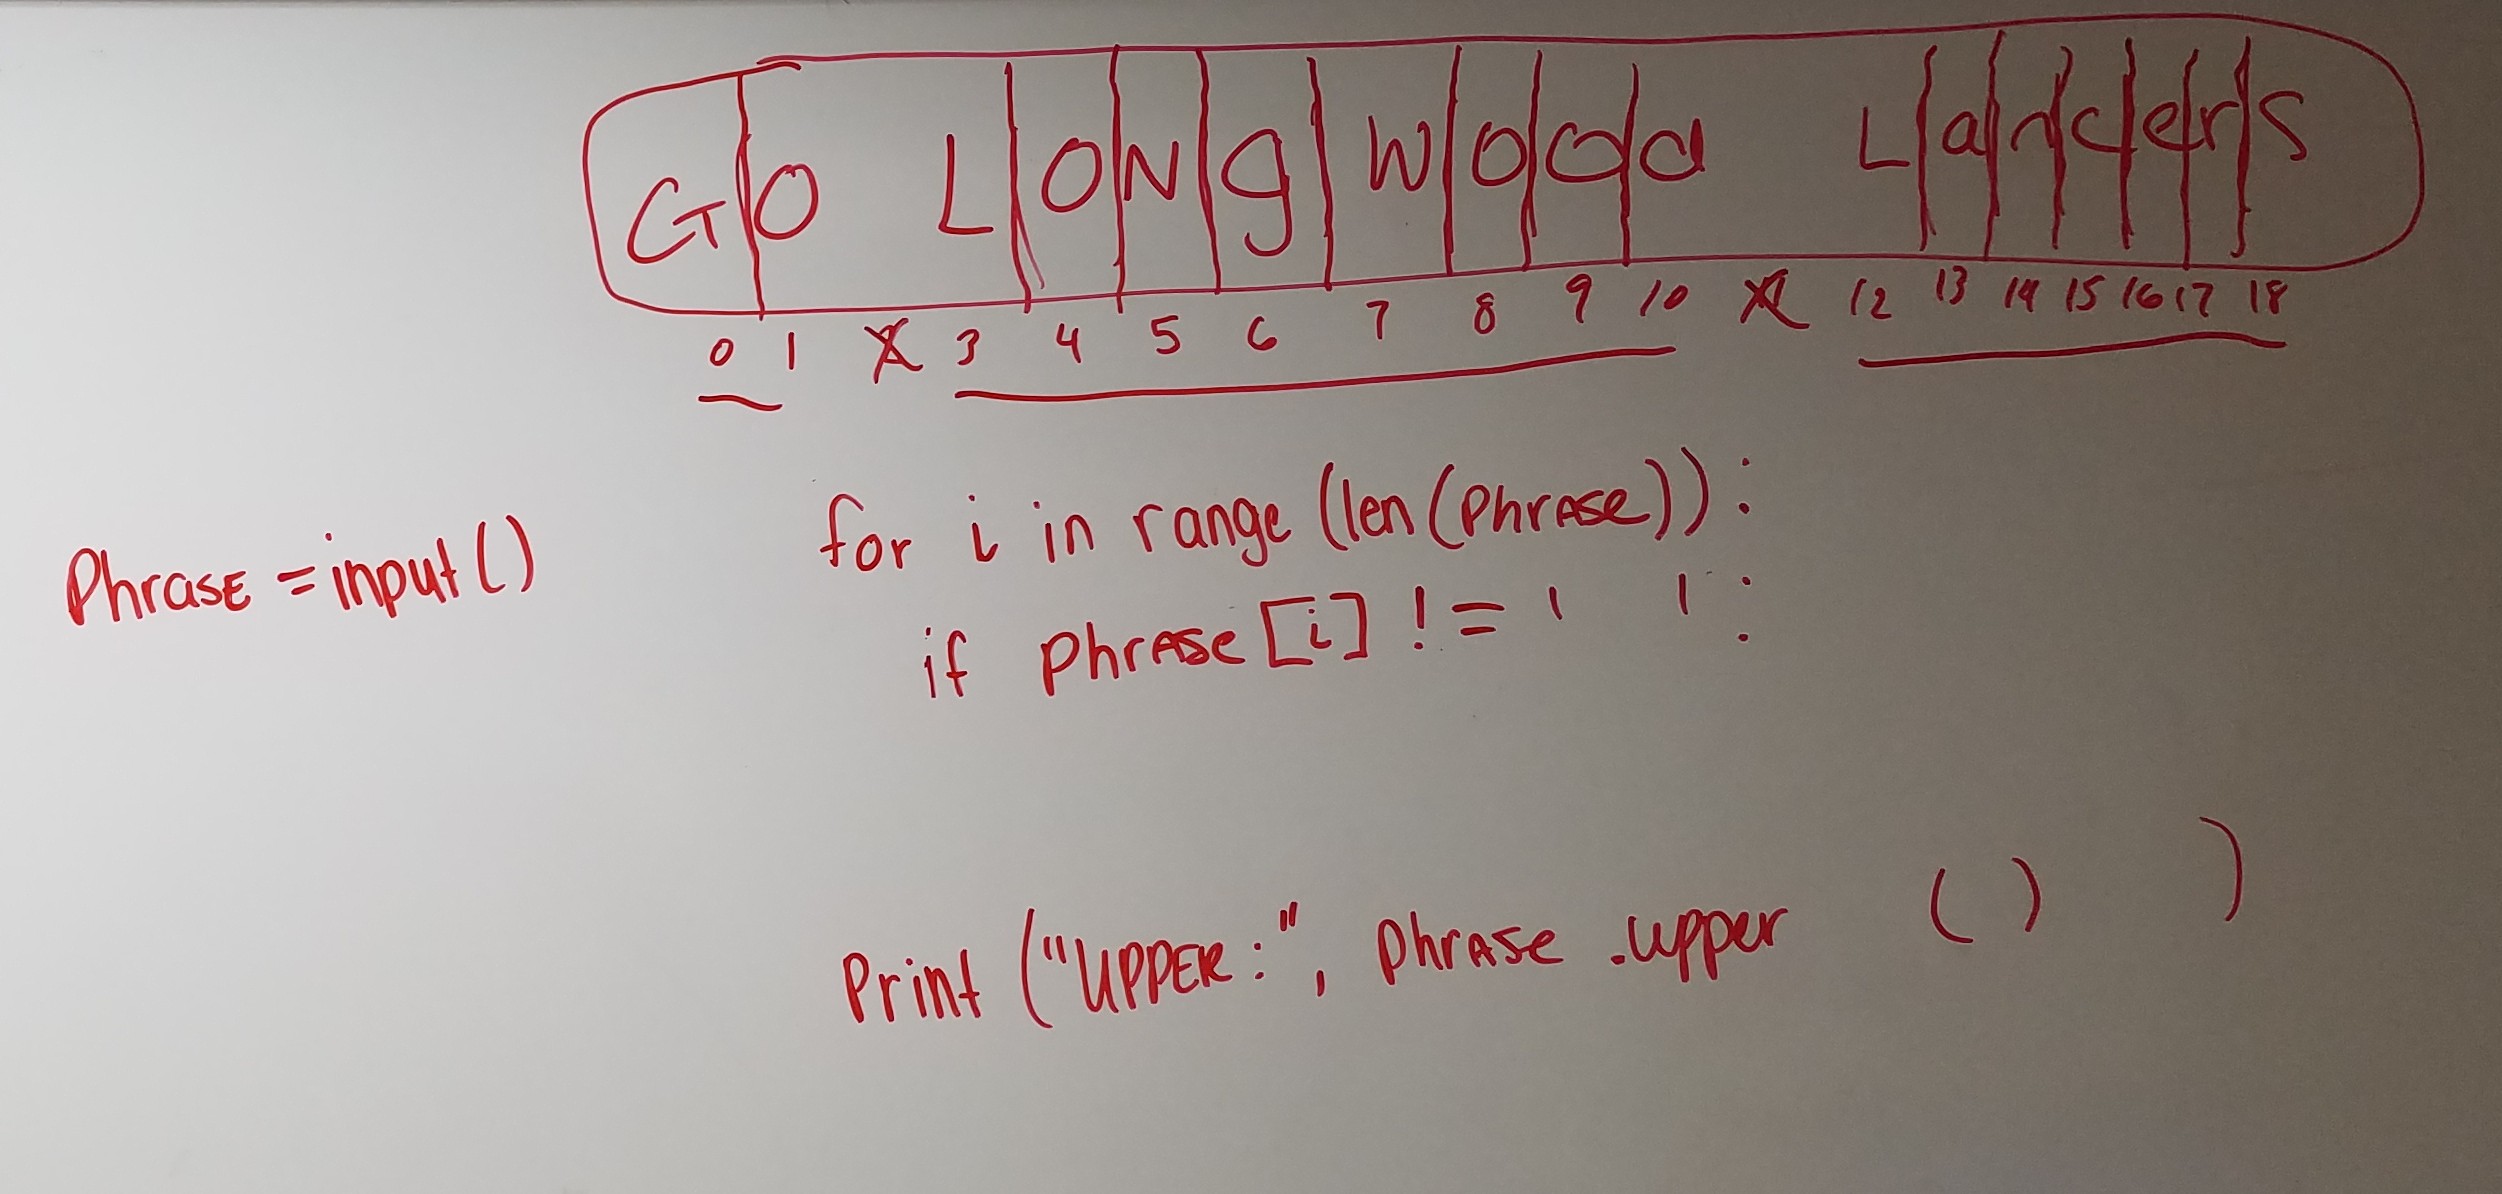 GO LONg Wood Landers
0 1 X 3 4 5 6 7 8 9 10 X 12 13 14 15 16 17 18
for i in range (len(Phrase)):
Phrase = input()
if Phrase[i] != ' ':
Print ("UPPER:", Phrase .upper ( ) )